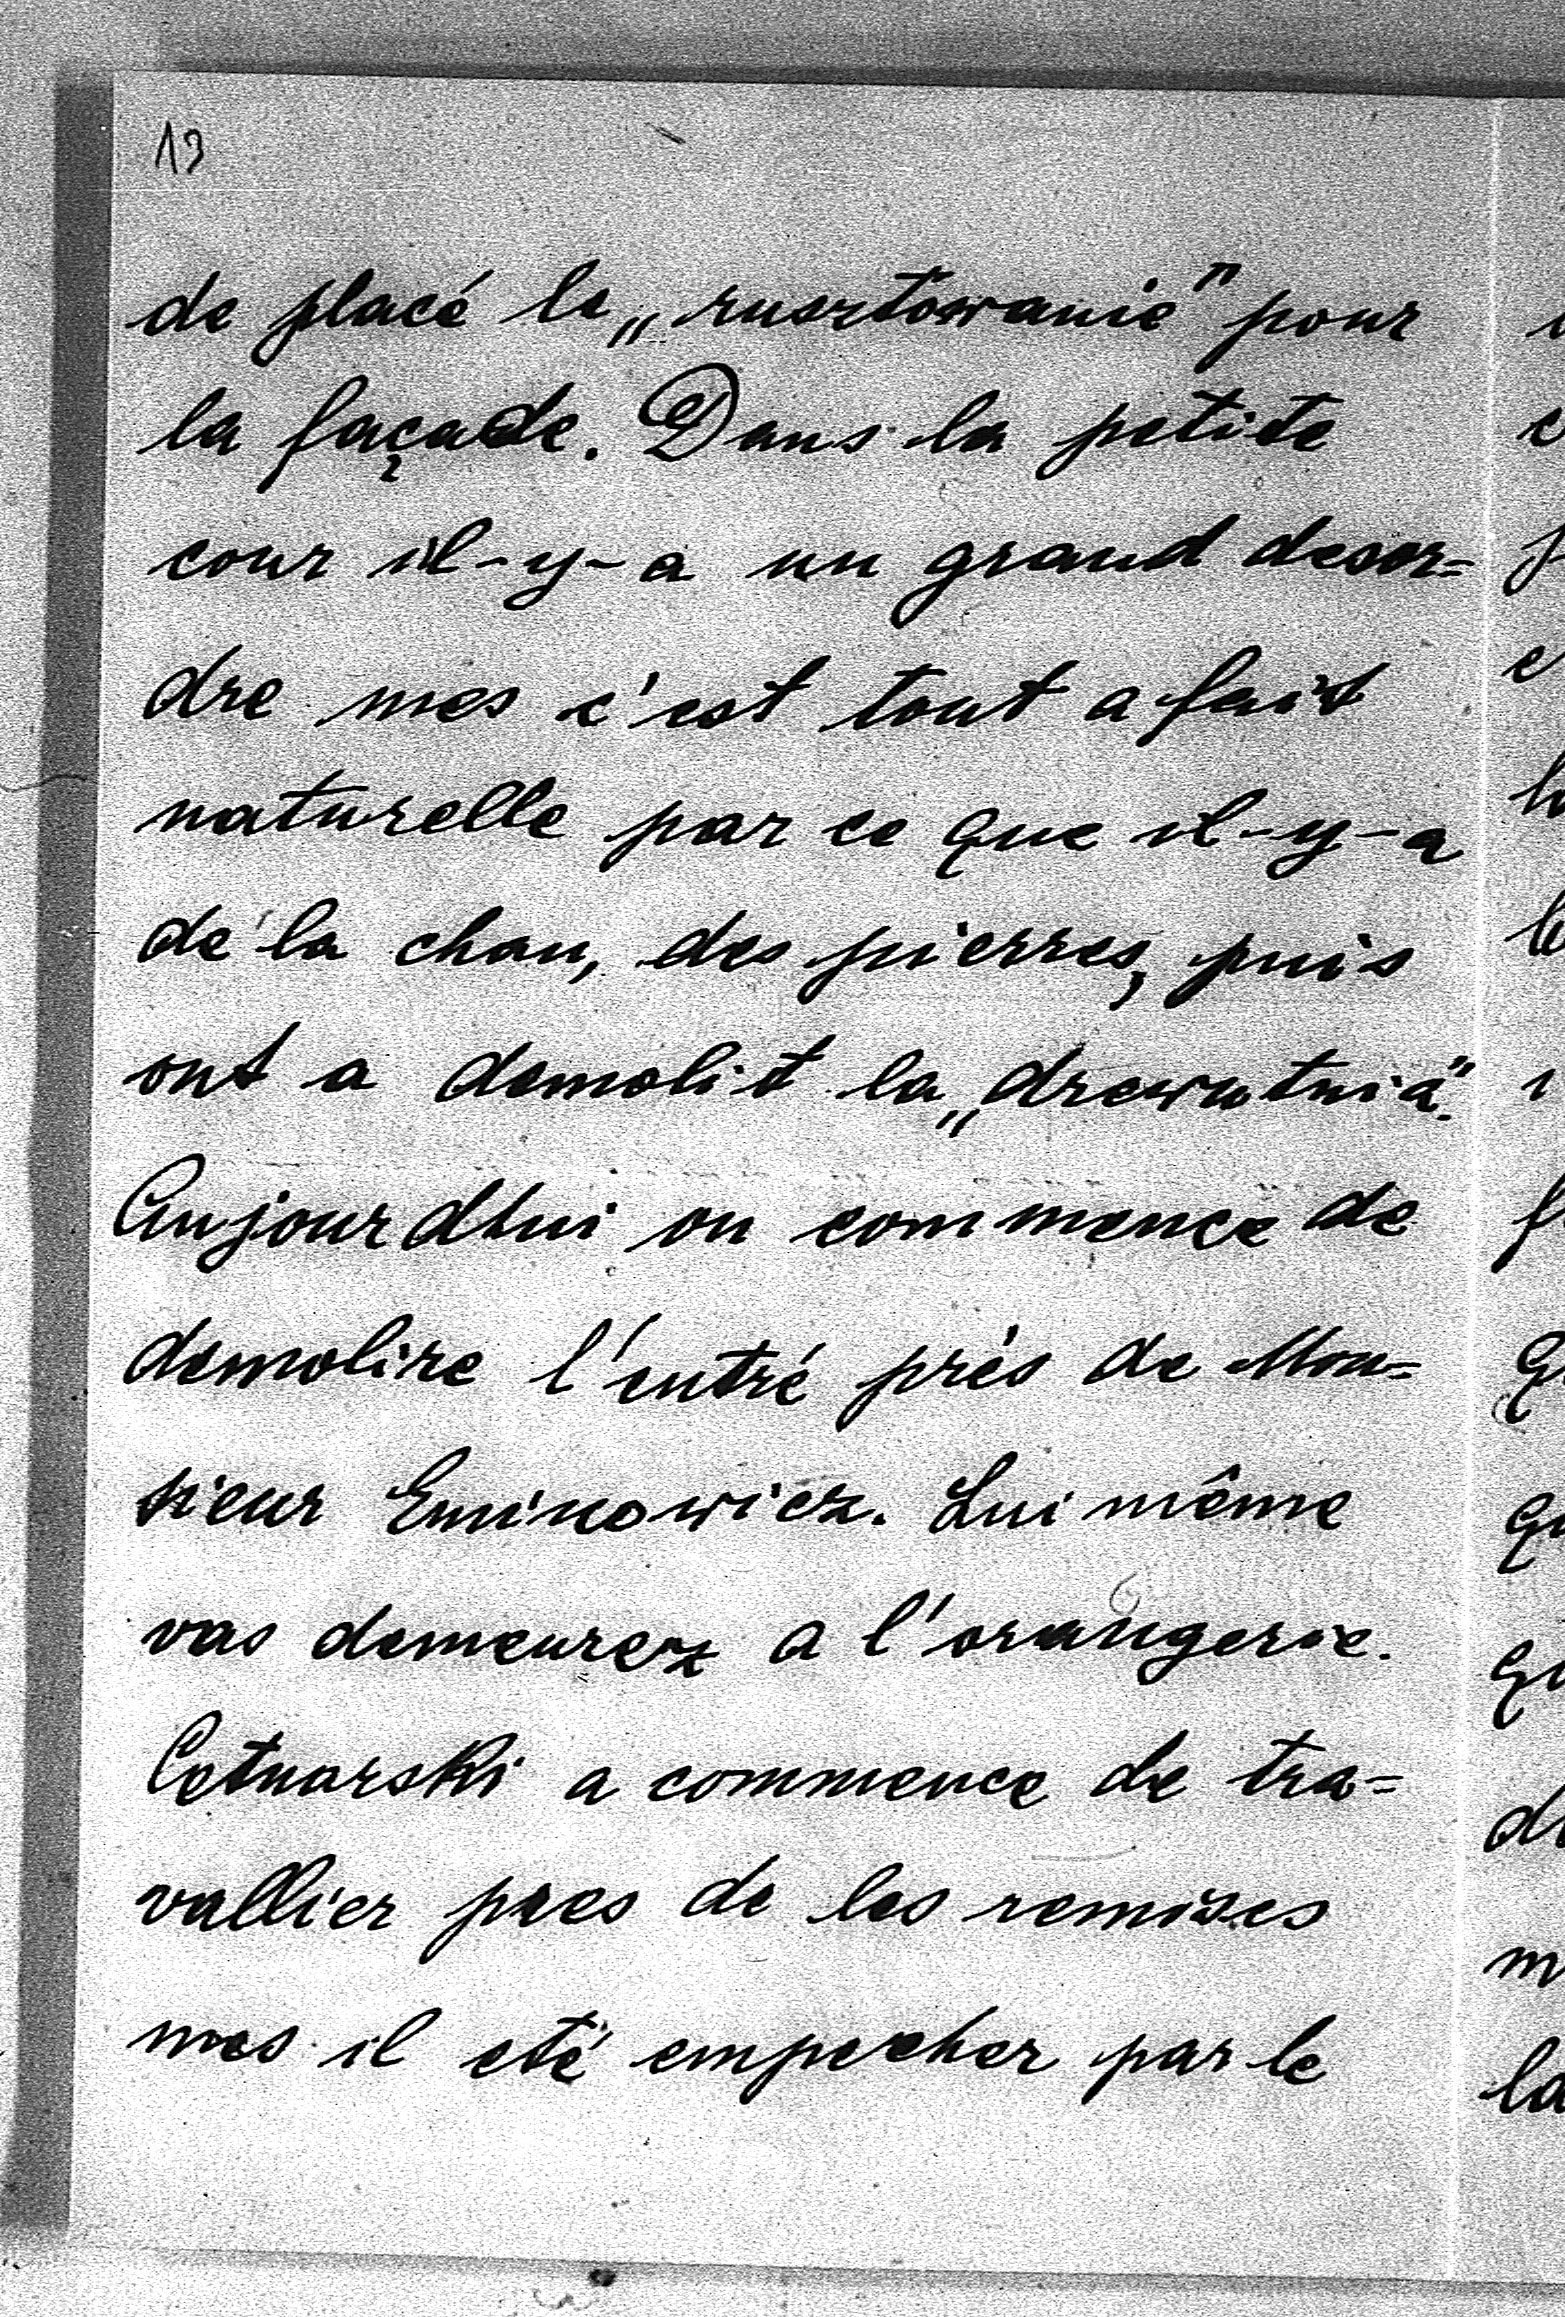 13
de placé le „rusztowanie” pour
la façade. Dans la petite
cour il-y-a un grand desor=
dre mes c'est tout a fait
naturelle par ce que il-y-a
de la chau, des pierres, puis
ont a demolit la „drewutnia”.
Aujourdhui on commence de
demolire l'entré près de Mon=
sieur Eminowicz. Lui même
vas demeurez a l'orangerie.
Cetnarski a commence de tra=
vallier pres de les remises
mes il eté empecher par le